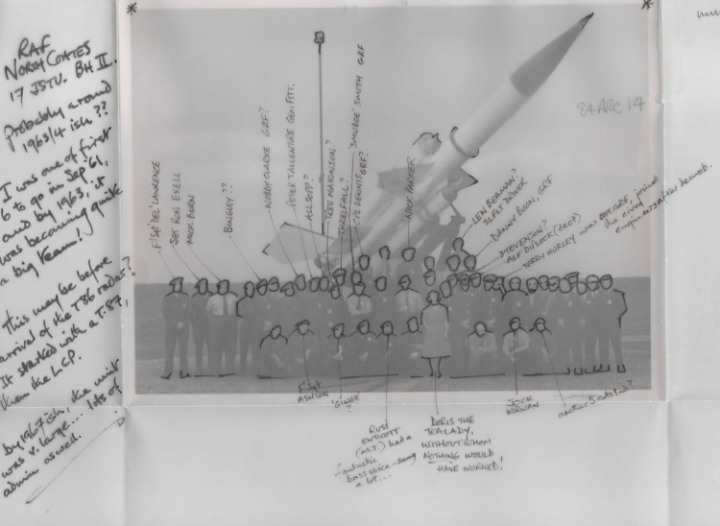 RAF
NORTH COATES
17 JSTU. BH II.
probably around
1963/4 ish ??
I was one of first
6 to go in Sep '61,
and by 1963 it
was becoming quite
a big team!
This may be before
arrival of the T86 radar?
It started with a T.87,
then the LCP.
By 1967 ish, the unit
was v. large... lots of
admin as well.
F/Sgt 'DEL' LAWRENCE
SGT RON EXELL
MICK BURN
BINGLEY ??
NOBBY CLARKE GRF?
PETER TALLENTIRE GEN FITT.
ALLSOPP?
TREV MAKINSON?
THRELFALL?
CPL DENNIS GRF?
'SMUDGE' SMITH GRF
NICK PARKER
LEN BERMAN?
DANNY BOON, GRF
STEVENSON?
ALF DIPLOCK (dec'd)
TERRY HURLEY was GRF, joined
the civvy
engineers
84 ARC 14
F/Sgt
ASHTON
'GINGE'
?
RUSS
(M.T.) had a
fantastic
bass voice - sang
a lot...
DORIS THE
TEA LADY.
WITHOUT WHOM
NOTHING WOULD
HAVE WORKED!
JOCK
KIRWAN
another